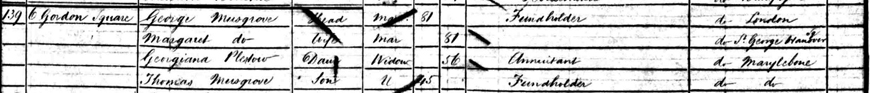 139 6 Gordon Square George Musgrove Head Mar 81 Fundholder do London
Margaret do Wife Mar 81 do St George Hanover
Georgiana Plestow Daur Widow 56 Annuitant do Marylebone
Thomas Musgrove Son U 45 Fundholder do do